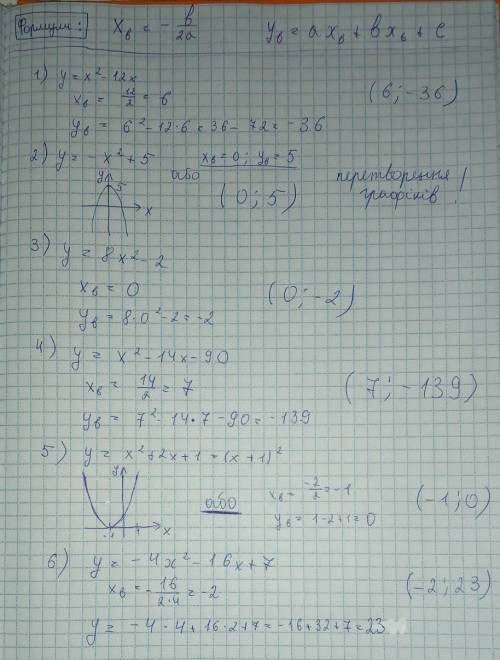 Формули: xв = - в/2a yв = axв + вxв + c
1) y = x² - 12x
xв = 12/2 = 6 (6; -36)
yв = 6² - 12·6 = 36 - 72 = -36
2) y = -x² + 5 або xв = 0; yв = 5
y 5 x (0; 5) перетворення графіків!
3) y = 8x² - 2
xв = 0 (0; -2)
yв = 8·0² - 2 = -2
4) y = x² - 14x - 90
xв = 14/2 = 7 (7; -139)
yв = 7² - 14·7 - 90 = -139
5) y = x² + 2x + 1 = (x + 1)²
y -1 1 x або xв = -2/2 = -1 (-1; 0)
yв = 1 - 2 + 1 = 0
6) y = -4x² - 16x + 7
xв = - 16/2·4 = -2 (-2; 23)
y = -4·4 + 16·2 + 7 = -16 + 32 + 7 = 23